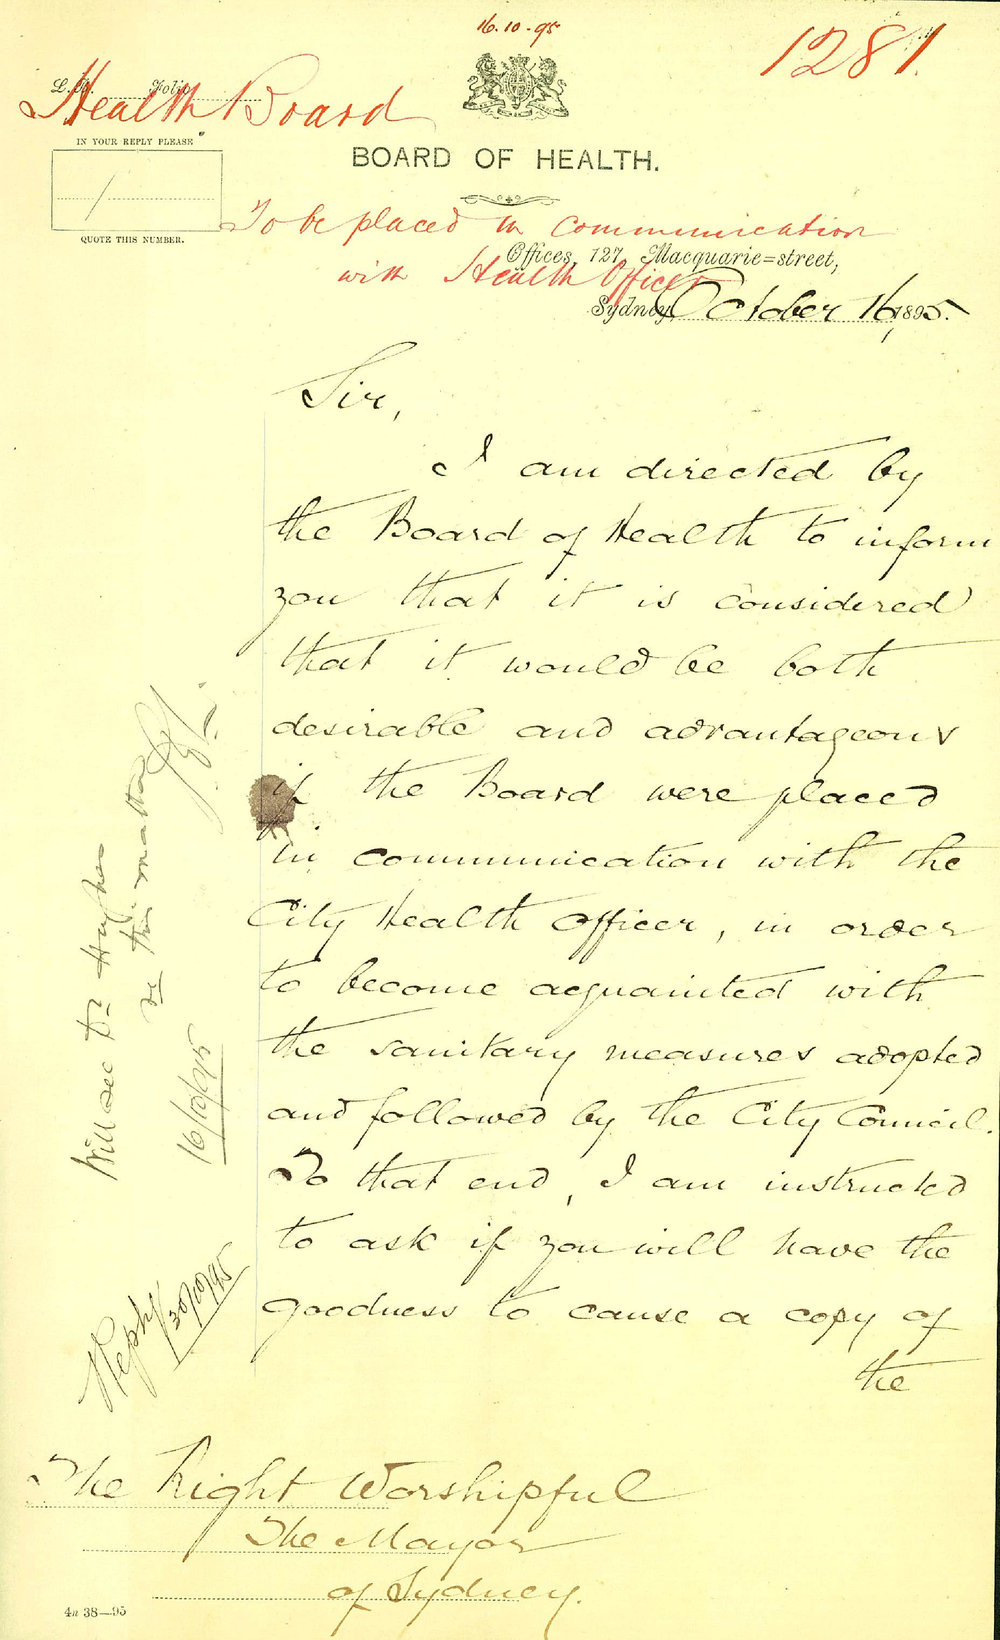 16.10.95
1281.
L.B. Folio
Health Board
IN YOUR REPLY PLEASE
1
QUOTE THIS NUMBER.
BOARD OF HEALTH.
To be placed in communication
with Health Officer
Offices, 127, Macquarie=street,
Sydney, October 16, 1895.
Sir,
I am directed by
the Board of Health to inform
you that it is considered
that it would be both
desirable and advantageous
if the Board were placed
in communication with the
City Health Officer, in order
to become acquainted with
the sanitary measures adopted
and followed by the City Council.
To that end, I am instructed
to ask if you will have the
goodness to cause a copy of
the
Will see Dr
re this matter
16/10/95
30/10/95
The Right Worshipful
The Mayor
of Sydney.
4a 38—95